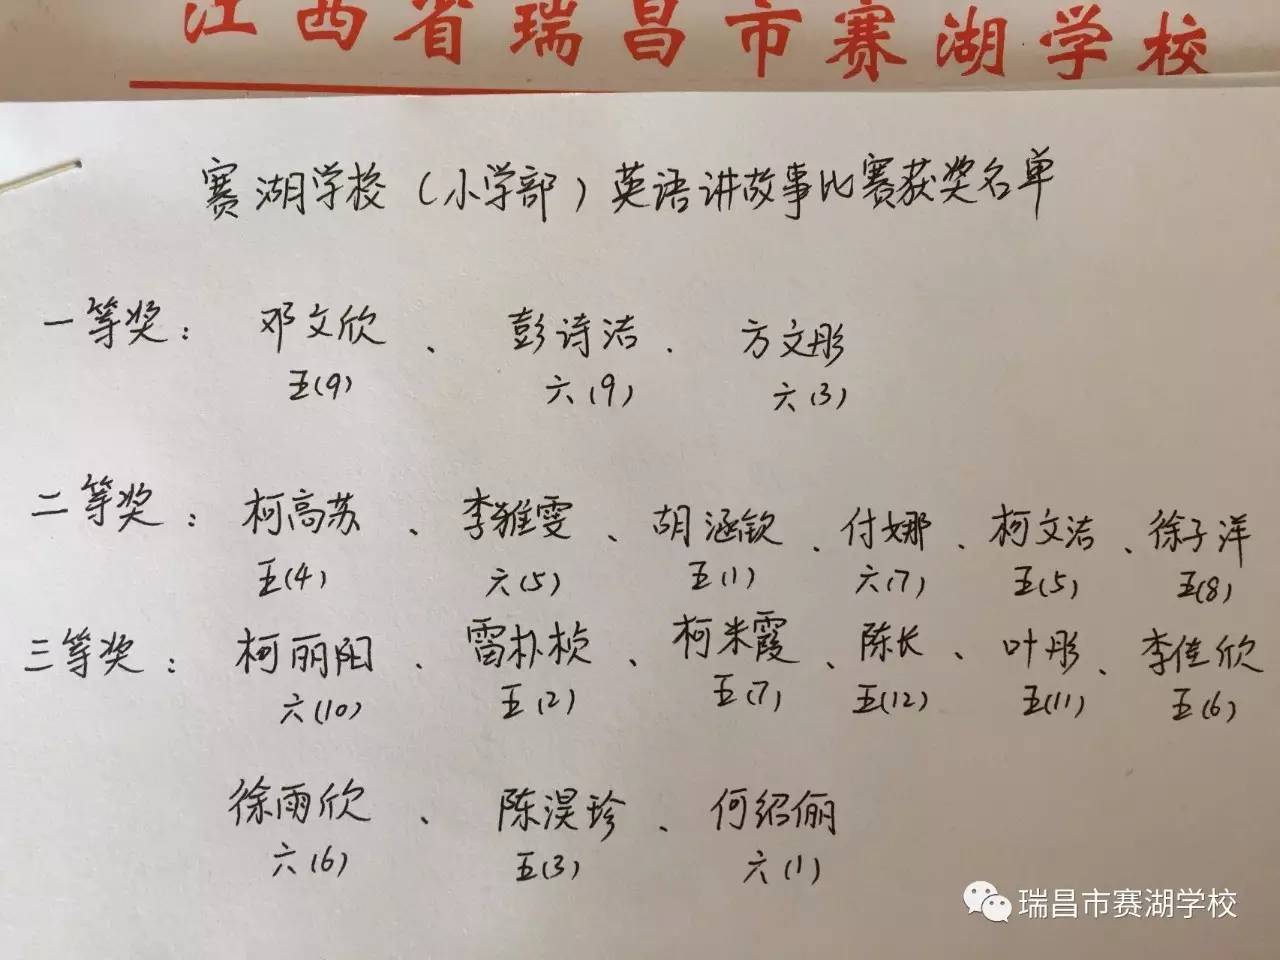 江西省瑞昌市赛湖学校
赛湖学校（小学部）英语讲故事比赛获奖名单
一等奖：邓文欣、彭诗洁、方文彤
五(9) 六(9) 六(3)
二等奖：柯高苏、李雅雯、胡涵钦、付娜、柯文洁、徐子洋
五(4) 六(5) 五(1) 六(7) 五(5) 五(8)
三等奖：柯丽阳、雷朴桢、柯米霞、陈长、叶彤、李佳欣
六(10) 五(2) 五(7) 五(12) 五(11) 五(6)
徐雨欣、陈淏珍、何绍俪
六(6) 五(3) 六(1)
瑞昌市赛湖学校